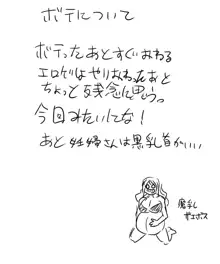 ボテについて
ボテったあとすぐおわる
エロゲはやりおわったあと
ちょっと残念に思う。
今回みたいにな!
あと 妊婦さんは黒乳首がいい
黒乳し